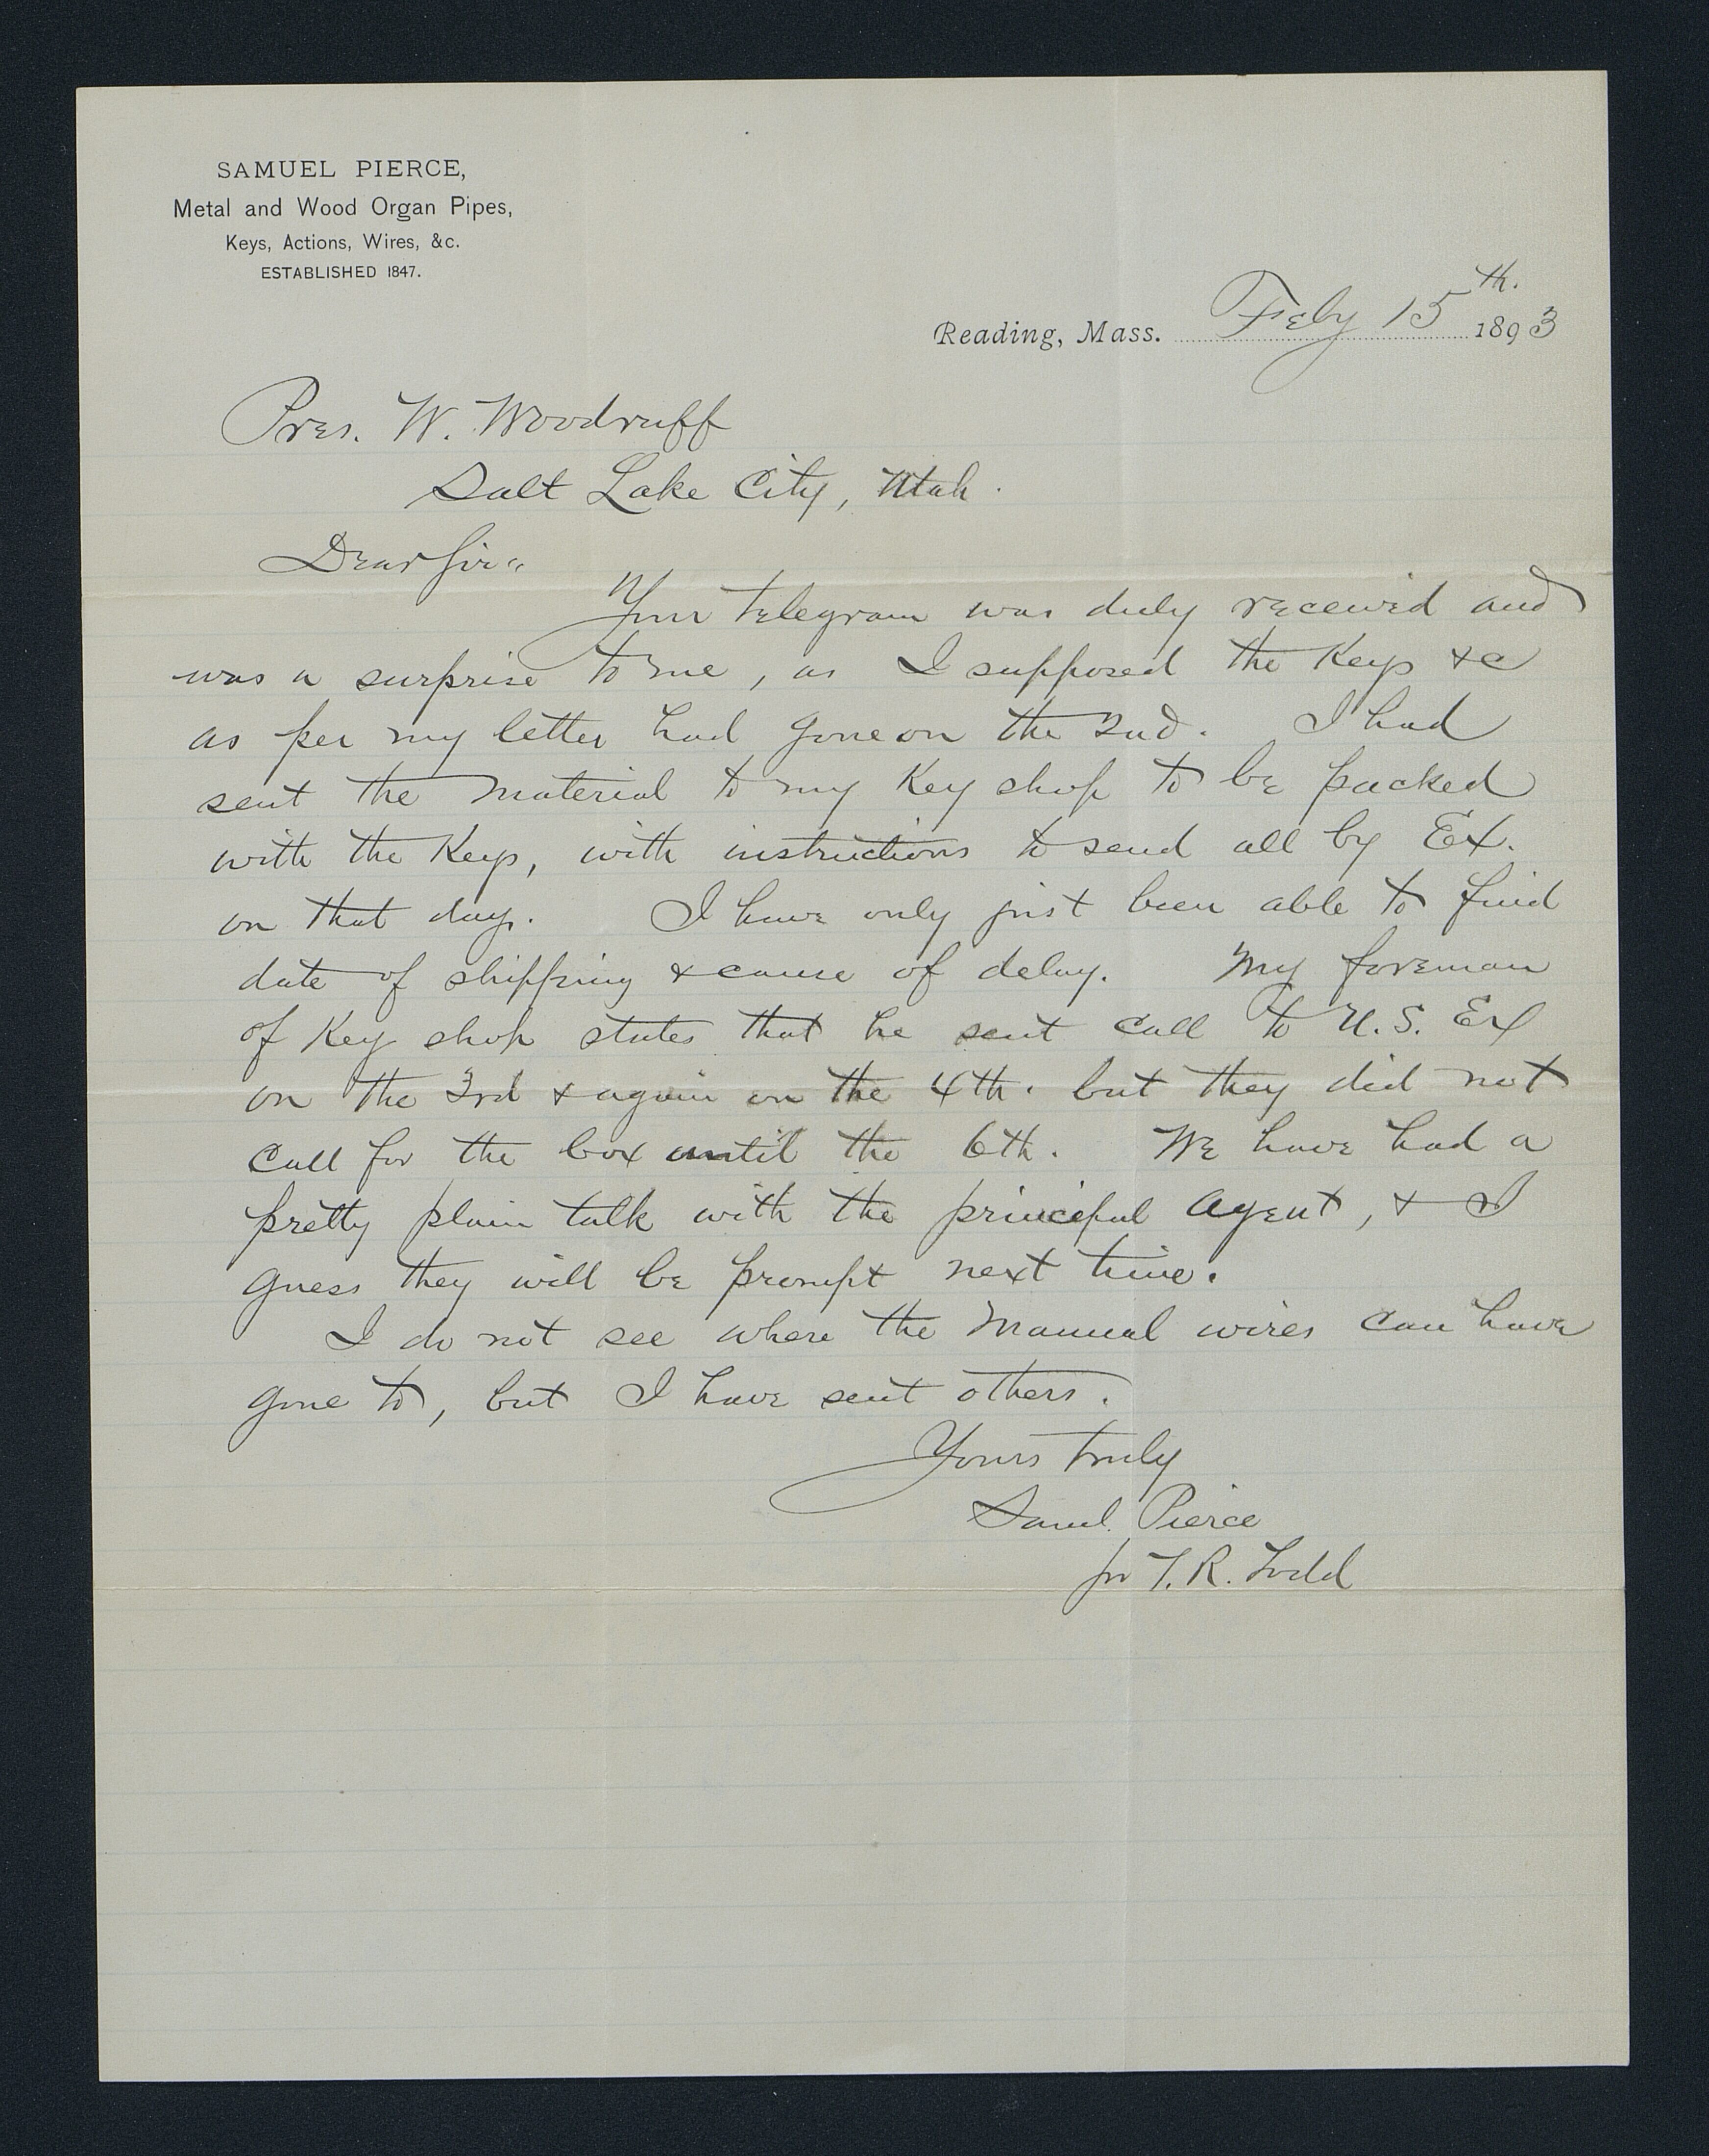 SAMUEL PIERCE,
Metal and Wood Organ Pipes,
Keys, Actions, Wires, &c.
ESTABLISHED 1847.
Reading, Mass. Feby 15th. 1893
Pres. W. Woodruff
Salt Lake City, Utah.
Dear Sir"
Your telegram was duly received and
was a surprise to me, as I supposed the Keys &c
as per my letter had gone on the 2nd. I had
sent the material to my Key shop to be packed
with the Keys, with instructions to send all by Ex.
on that day. I have only just been able to find
date of shipping & cause of delay. My foreman
of Key shop states that he sent call to U.S. Ex
on the 3rd & again on the 4th. but they did not
call for the box until the 6th. We have had a
pretty plain talk with the principal agent, & I
guess they will be prompt next time.
I do not see where the Manual wires can have
gone to, but I have sent others.
Yours truly
Saml. Pierce
pr T. R. Todd